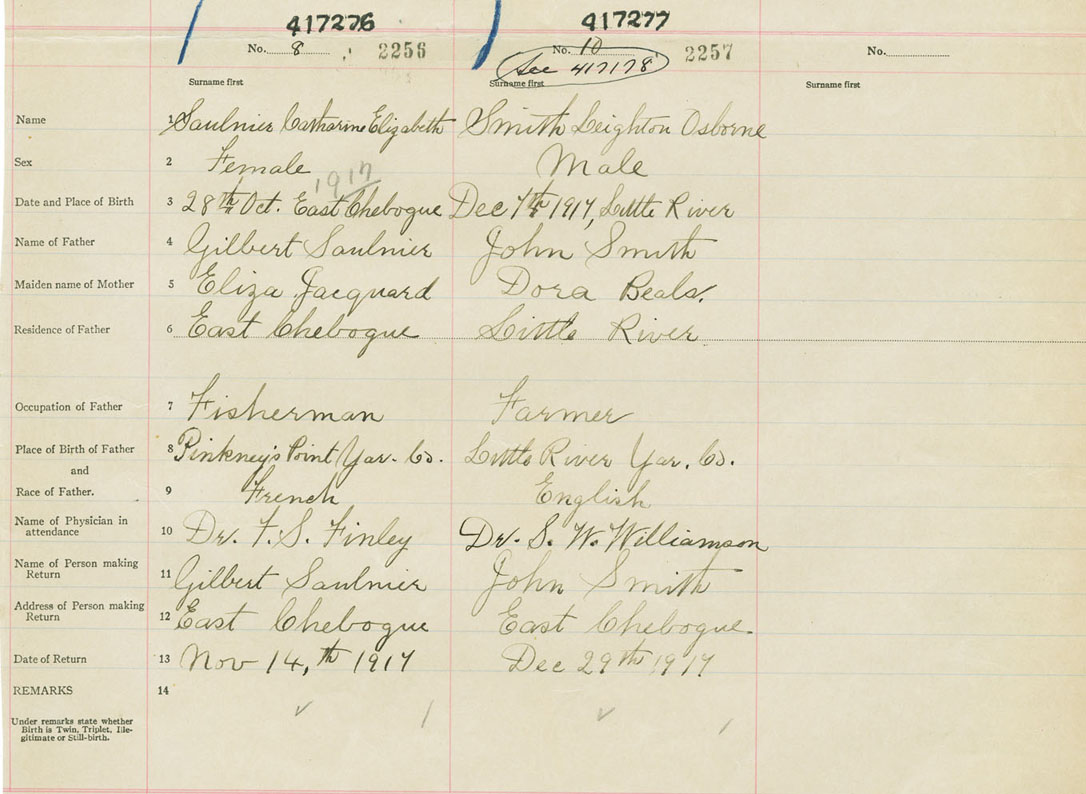 417276 417277
No. 8 2256 No. 10 2257 No.
See 417178
Surname first Surname first Surname first
Name 1 Saulnier Catharine Elizabeth Smith Leighton Osborne
Sex 2 Female Male
1917
Date and Place of Birth 3 28th Oct. East Chebogue Dec 7th 1917, Little River
Name of Father 4 Gilbert Saulnier John Smith
Maiden name of Mother 5 Eliza Jacquard Dora Beals.
Residence of Father 6 East Chebogue Little River
Occupation of Father 7 Fisherman Farmer
Place of Birth of Father 8 Pinkney's Point Yar. Co. Little River Yar. Co.
and
Race of Father. 9 French English
Name of Physician in
attendance 10 Dr. F. S. Finley Dr. S. W. Williamson
Name of Person making
Return 11 Gilbert Saulnier John Smith
Address of Person making
Return 12 East Chebogue East Chebogue.
Date of Return 13 Nov 14,th 1917 Dec 29th 1917
REMARKS 14
Under remarks state whether
Birth is Twin, Triplet, Ille-
gitimate or Still-birth.